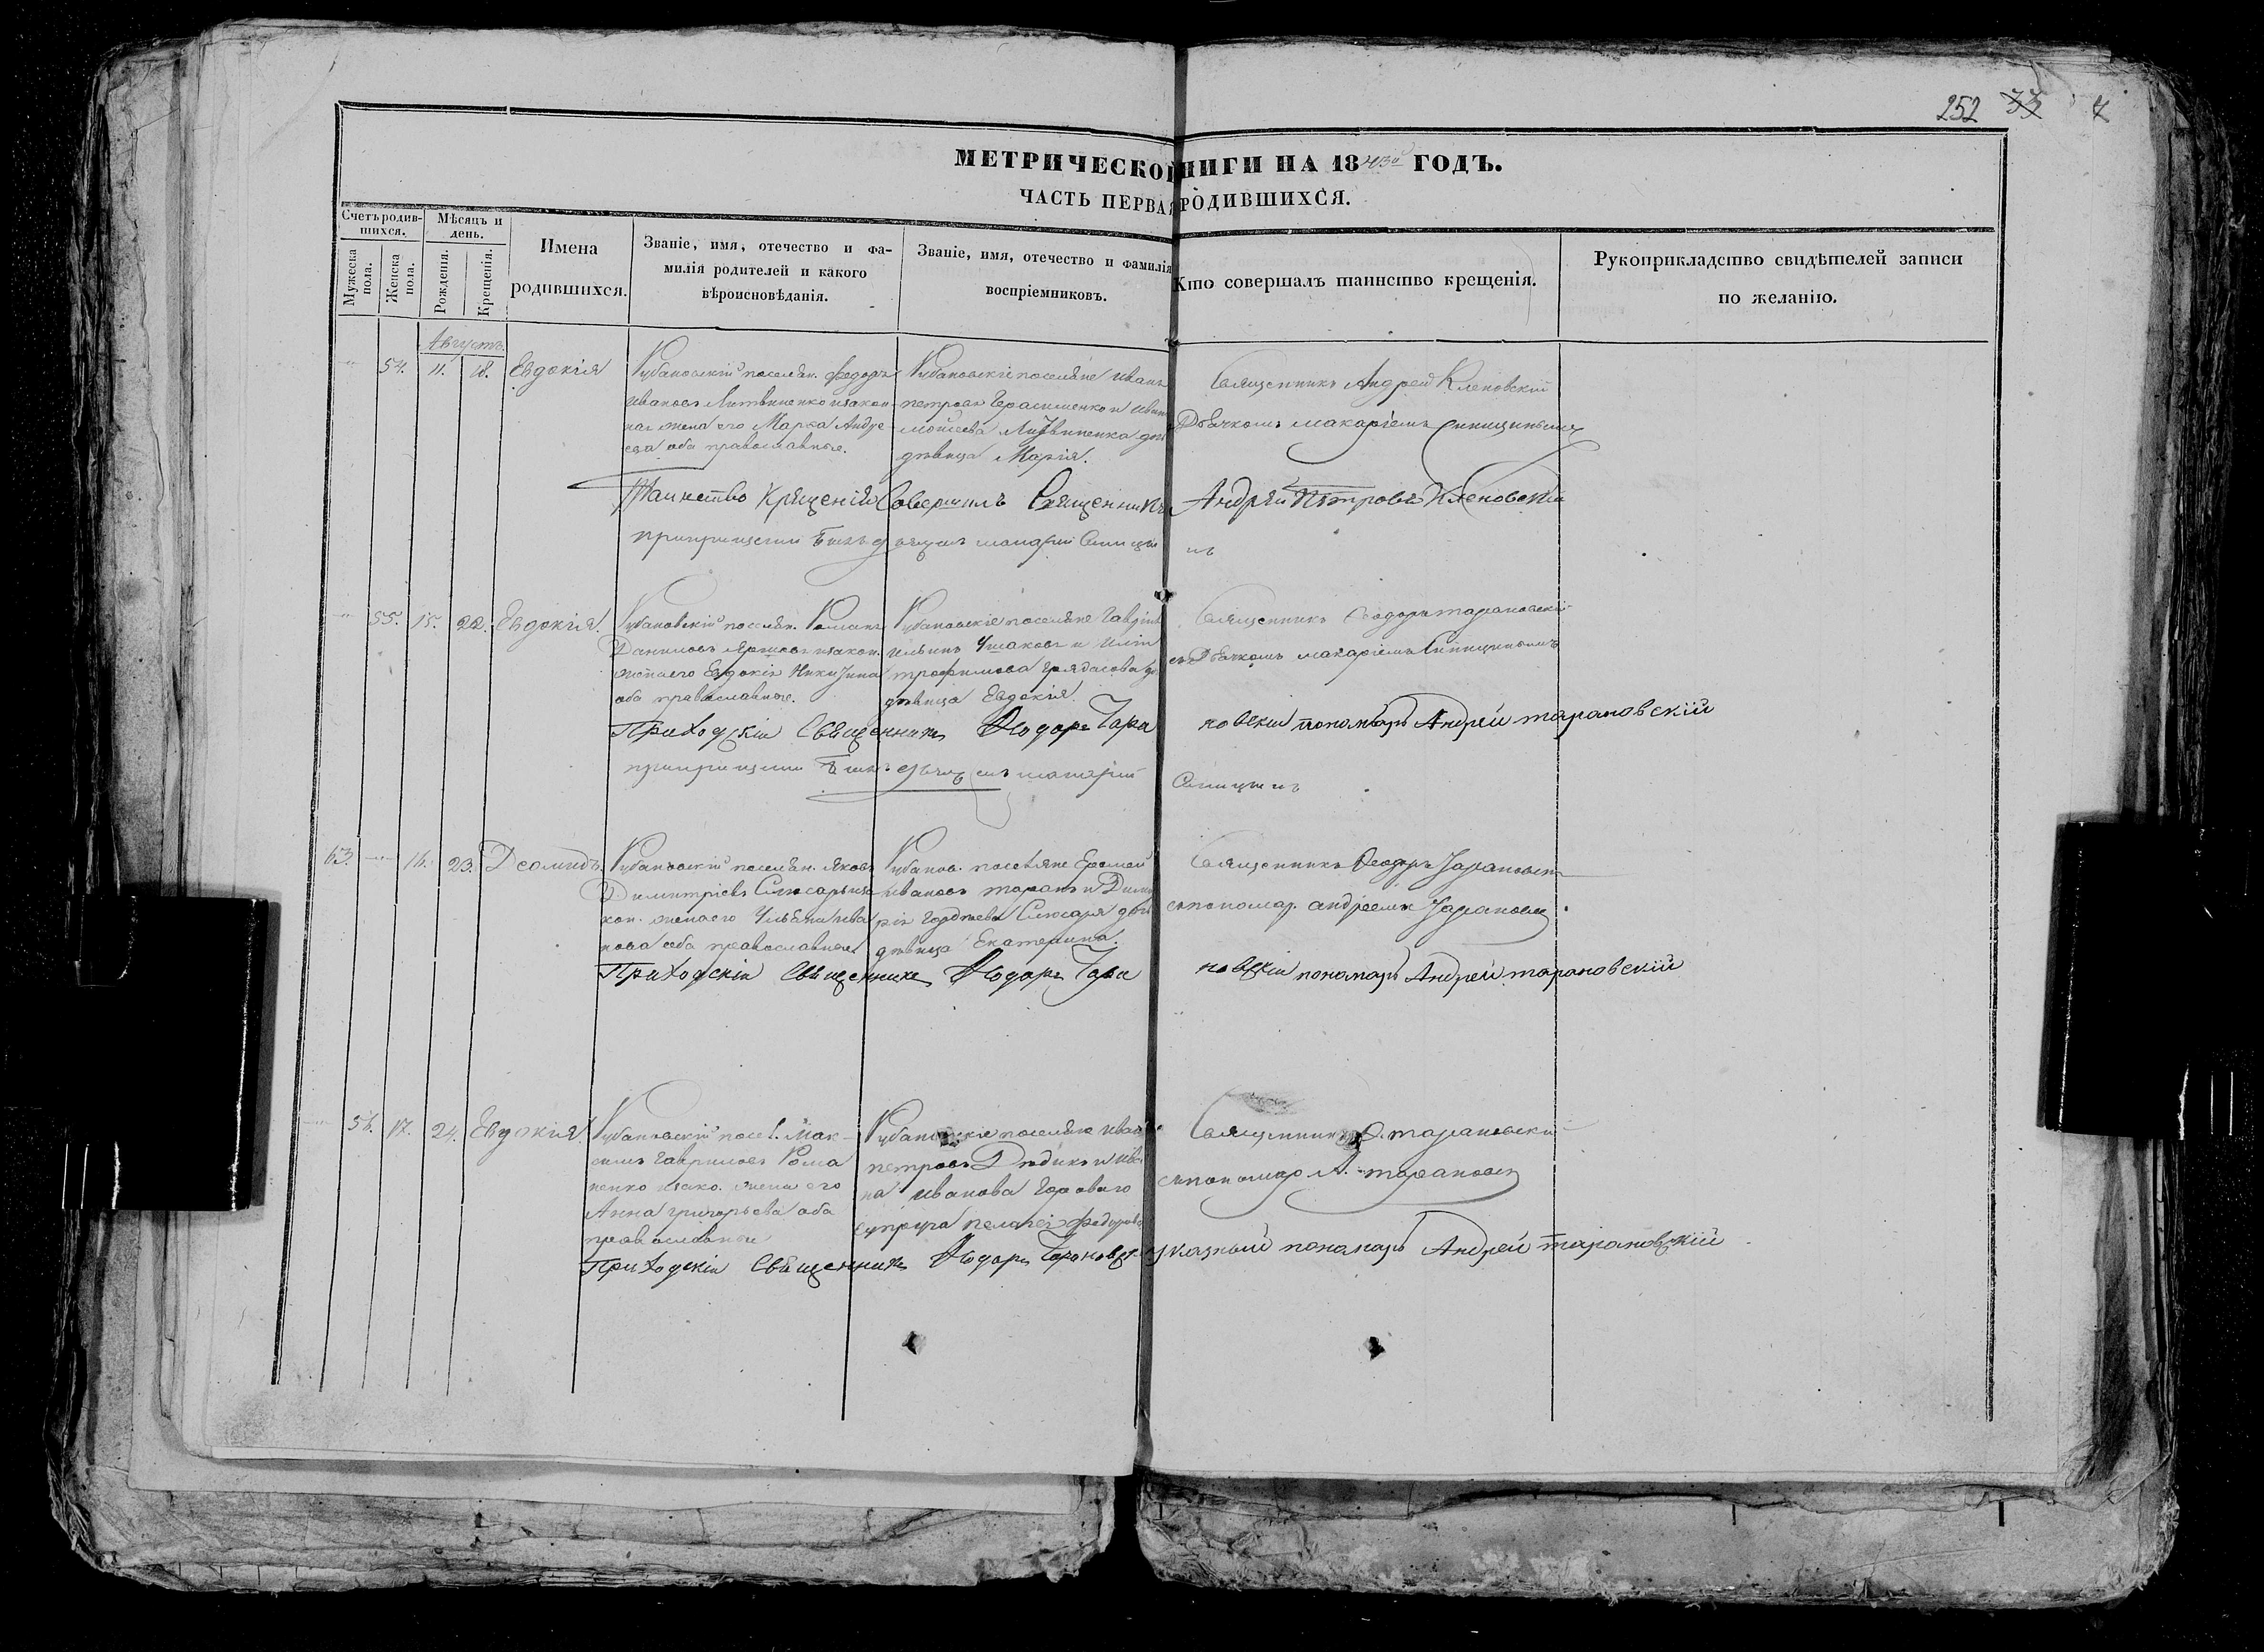 252 33 7
МЕТРИЧЕСКОЙ НИГИ НА 1843й ГОДЪ.
ЧАСТЬ ПЕРВАЯ РОДИВШИХСЯ.
Счетъ родив-
шихся.
Мужеска
пола.
Женска
пола.
Мѣсяцъ и
день.
Рожденія.
Крещенія.
Имена
родившихся.
Званіе, имя, отечество и фа-
милія родителей и какого
вѣроисповѣданія.
Званіе, имя, отечество и фамилія
воспріемниковъ.
Кто совершалъ таинство крещенія.
Рукоприкладство свидѣтелей записи
по желанію.
Августъ.
54. 11. 18. Евдокія
Рубановскій поселян. Федоръ
Ивановъ Литвиненко и закон
ная жена его Марѳа Андре
ева оба православные.
Рубановскіе поселяне Иванъ
петровъ Герасименко и
Моисеева Литвиненка
дѣвица Марія.
Священникъ Андрей Кленовскій
Дьячкомъ Макаріемъ Синицинымъ
Таинство Крещенія Совершилъ Священникъ Андрей Петровъ Кленовскій
55. 15. 22. Евдокія.
Рубановскій поселян. Романъ
Даниловъ и закон.
жена его Евдокія Никитина
оба православные.
Рубановскіе поселяне Гаврілъ
Ильинъ Ушаковъ и
трофимова
дѣвица Евдокія
Священникъ Ѳеодоръ тарановскій
съ Дьячкомъ Макаріемъ Синицинымъ
Приходскій Священникъ Ѳеодоръ Тара новскій пономарь Андрей тарановскій
Синицинъ
63. 16. 23. Деомидъ
Рубановскій поселян. Яковъ
Димитріевъ Слюсарь и за
кон. жена его Ульяна Ива
нова оба православные
Рубанов. поселяне
Ивановъ таранъ и Дими
рія Гордѣева Слюсаря
дѣвица Екатерина.
Священникъ Ѳеодоръ Тарановск
съ пономар. андреемъ Тарановск
Приходскій Священникъ Ѳеодоръ Тара новскій пономарь Андрей тарановскій
56. 17. 24. Евдокія
Рубановскій посел. Мак-
симъ Гавриловъ Рома
ненко и зако. жена его
Анна григорьева оба
православные
Рубановскіе поселяне Иванъ
петровъ Дѣдикъ и Ива
на Иванова Горового
супруга пелагея Федорова
Священникъ Ѳ. тарановскі
съ пономаро А. тарановск
Приходскій Священникъ Ѳеодоръ Тарановск указный пономарь Андрей тарановскій